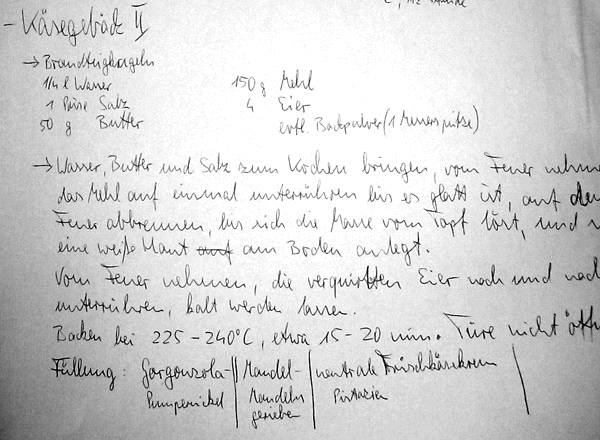 - Käsegebäck II
→ Brandteigkugeln
1/4 l Wasser 150 g Mehl
1 Prise Salz 4 Eier
50 g Butter evtl. Backpulver (1 Messerspitze)
→ Wasser, Butter und Salz zum Kochen bringen, vom Feuer nehmen
das Mehl auf einmal unterrühren bis es glatt ist, auf dem
Feuer abbrennen, bis sich die Masse vom Topf löst, und
eine weiße Haut auf am Boden anlegt.
Vom Feuer nehmen, die verquirlten Eier nach und nach
unterrühren, kalt werden lassen.
Backen bei 225-240°C, etwa 15-20 min. Türe nicht öff
Füllung: Gorgonzola- Mandel- neutrale Frischkäsekrem
Pumpernickel Mandeln Pistazien
gerieben